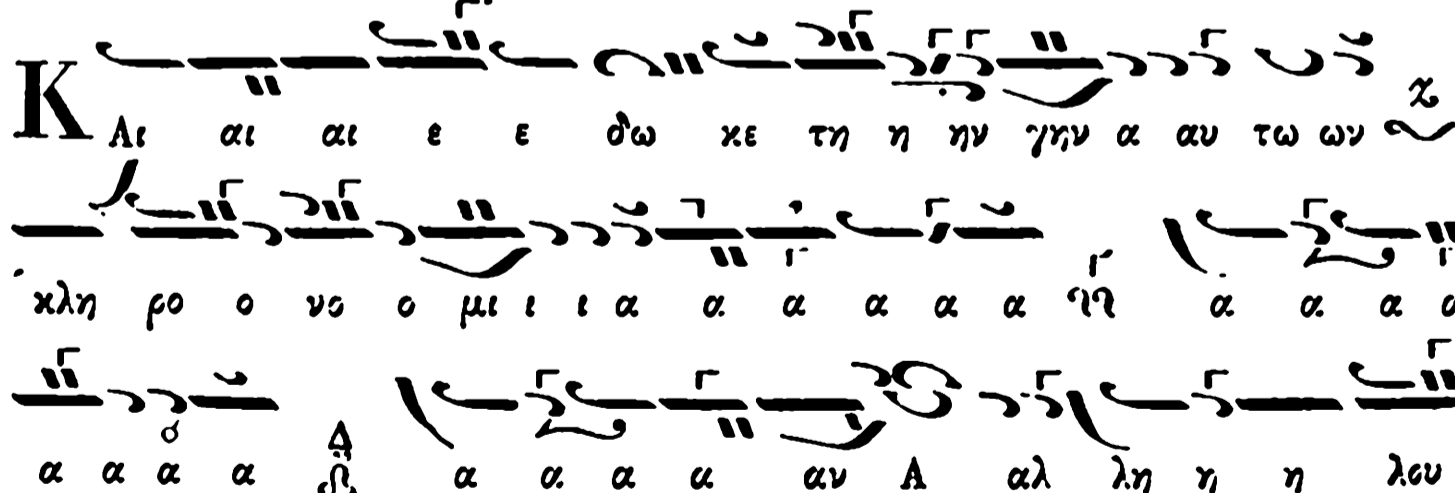 Και αι αι ε ε δω κε τη η ην γην α αυ τω ων
κλη ρο ο νο ο μι ι ι α α α α α α α α α α
α α α α α α α α αν Α αλ λη η η λου